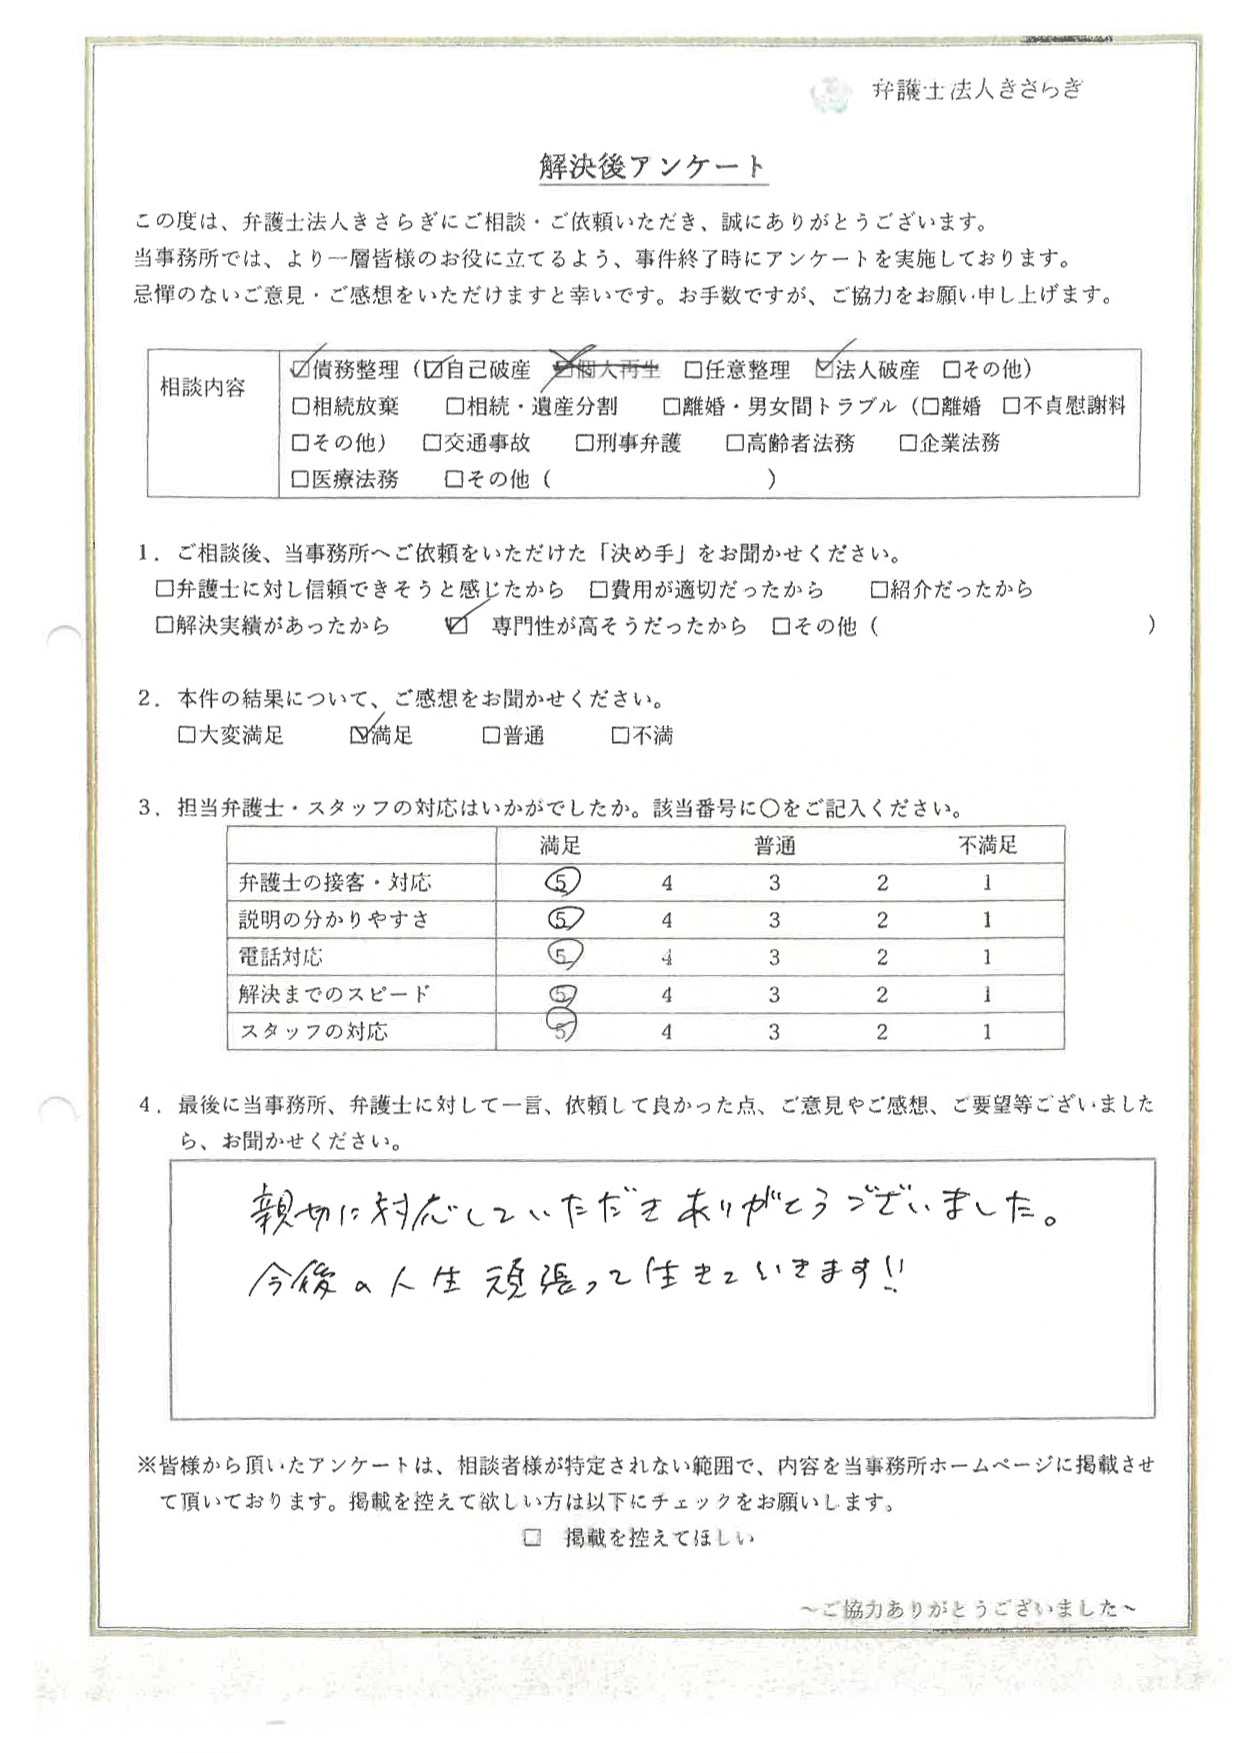 弁護士法人きさらぎ
解決後アンケート
この度は、弁護士法人きさらぎにご相談・ご依頼いただき、誠にありがとうございます。
当事務所では、より一層皆様のお役に立てるよう、事件終了時にアンケートを実施しております。
忌憚のないご意見・ご感想をいただけますと幸いです。お手数ですが、ご協力をお願い申し上げます。
相談内容
☑債務整理（☑自己破産 ☑個人再生 □任意整理 ☑法人破産 □その他）
□相続放棄 □相続・遺産分割 □離婚・男女間トラブル（□離婚 □不貞慰謝料
□その他） □交通事故 □刑事弁護 □高齢者法務 □企業法務
□医療法務 □その他（ ）
1．ご相談後、当事務所へご依頼をいただけた「決め手」をお聞かせください。
□弁護士に対し信頼できそうと感じたから □費用が適切だったから □紹介だったから
□解決実績があったから ☑ 専門性が高そうだったから □その他（ ）
2．本件の結果について、ご感想をお聞かせください。
□大変満足 ☑満足 □普通 □不満
3．担当弁護士・スタッフの対応はいかがでしたか。該当番号に〇をご記入ください。
満足 普通 不満足
弁護士の接客・対応 ⑤ 4 3 2 1
説明の分かりやすさ ⑤ 4 3 2 1
電話対応 ⑤ 4 3 2 1
解決までのスピード ⑤ 4 3 2 1
スタッフの対応 ⑤ 4 3 2 1
4．最後に当事務所、弁護士に対して一言、依頼して良かった点、ご意見やご感想、ご要望等ございました
ら、お聞かせください。
親切に対応していただきありがとうございました。
今後の人生頑張って生きていきます!!
※皆様から頂いたアンケートは、相談者様が特定されない範囲で、内容を当事務所ホームページに掲載させ
て頂いております。掲載を控えて欲しい方は以下にチェックをお願いします。
□ 掲載を控えてほしい
～ご協力ありがとうございました～